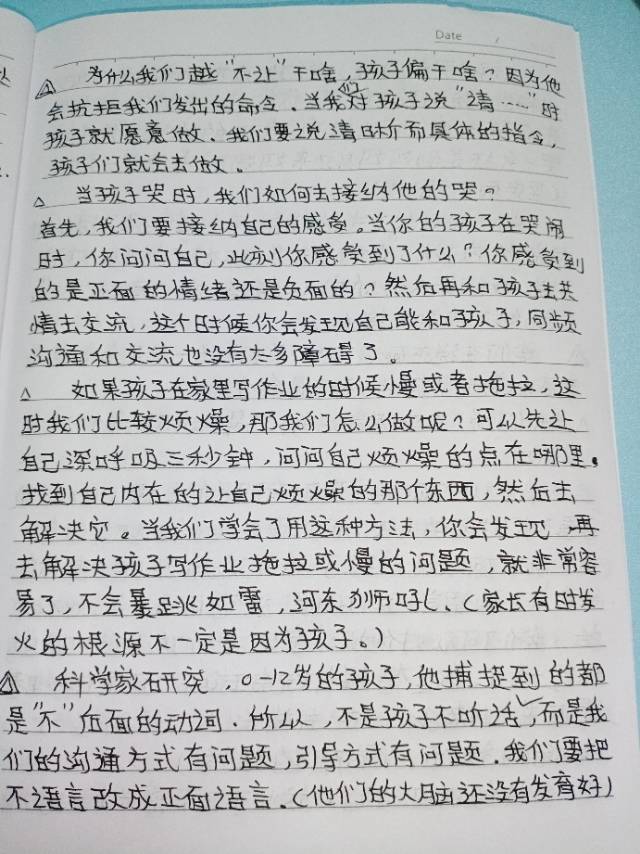 Date
△ 为什么我们越“不让”干啥,孩子偏干啥?因为他
会抗拒我们发出的命令.当我们对孩子说“请……”时
孩子就愿意做.我们要说清晰而具体的指令,
孩子们就会去做。
△ 当孩子哭时,我们如何去接纳他的哭?
首先,我们要接纳自己的感觉。当你的孩子在哭闹
时,你问问自己,此刻你感觉到了什么?你感觉到
的是正面的情绪还是负面的?然后再和孩子去共
情去交流,这个时候你会发现自己能和孩子,同频
沟通和交流也没有太多障碍了。
△ 如果孩子在家里写作业的时候慢或者拖拉,这
时我们比较烦燥,那我们怎么做呢?可以先让
自己深呼吸三秒钟,问问自己烦燥的点在哪里。
找到自己内在的让自己烦燥的那个东西,然后去
解决它。当我们学会了用这种方法,你会发现,再
去解决孩子写作业拖拉或慢的问题,就非常容
易了,不会暴跳如雷,河东狮吼.(家长有时发
火的根源不一定是因为孩子。)
△ 科学家研究,0-12岁的孩子,他捕捉到的都
是“不”后面的动词.所以,不是孩子不听话,而是我
们的沟通方式有问题,引导方式有问题.我们要把
不语言改成正面语言.(他们的大脑还没有发育好)